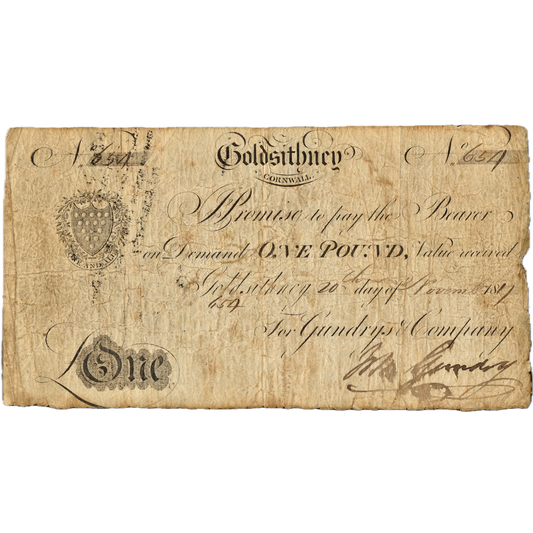 No. 654 Goldsithney No. 654
CORNWALL
ONE AND ALL
I Promise to pay the Bearer
on Demand ONE POUND, Value received
Goldsithney 20th day of Novemr 1817
654
For Gundrys & Company
£One
Gundry